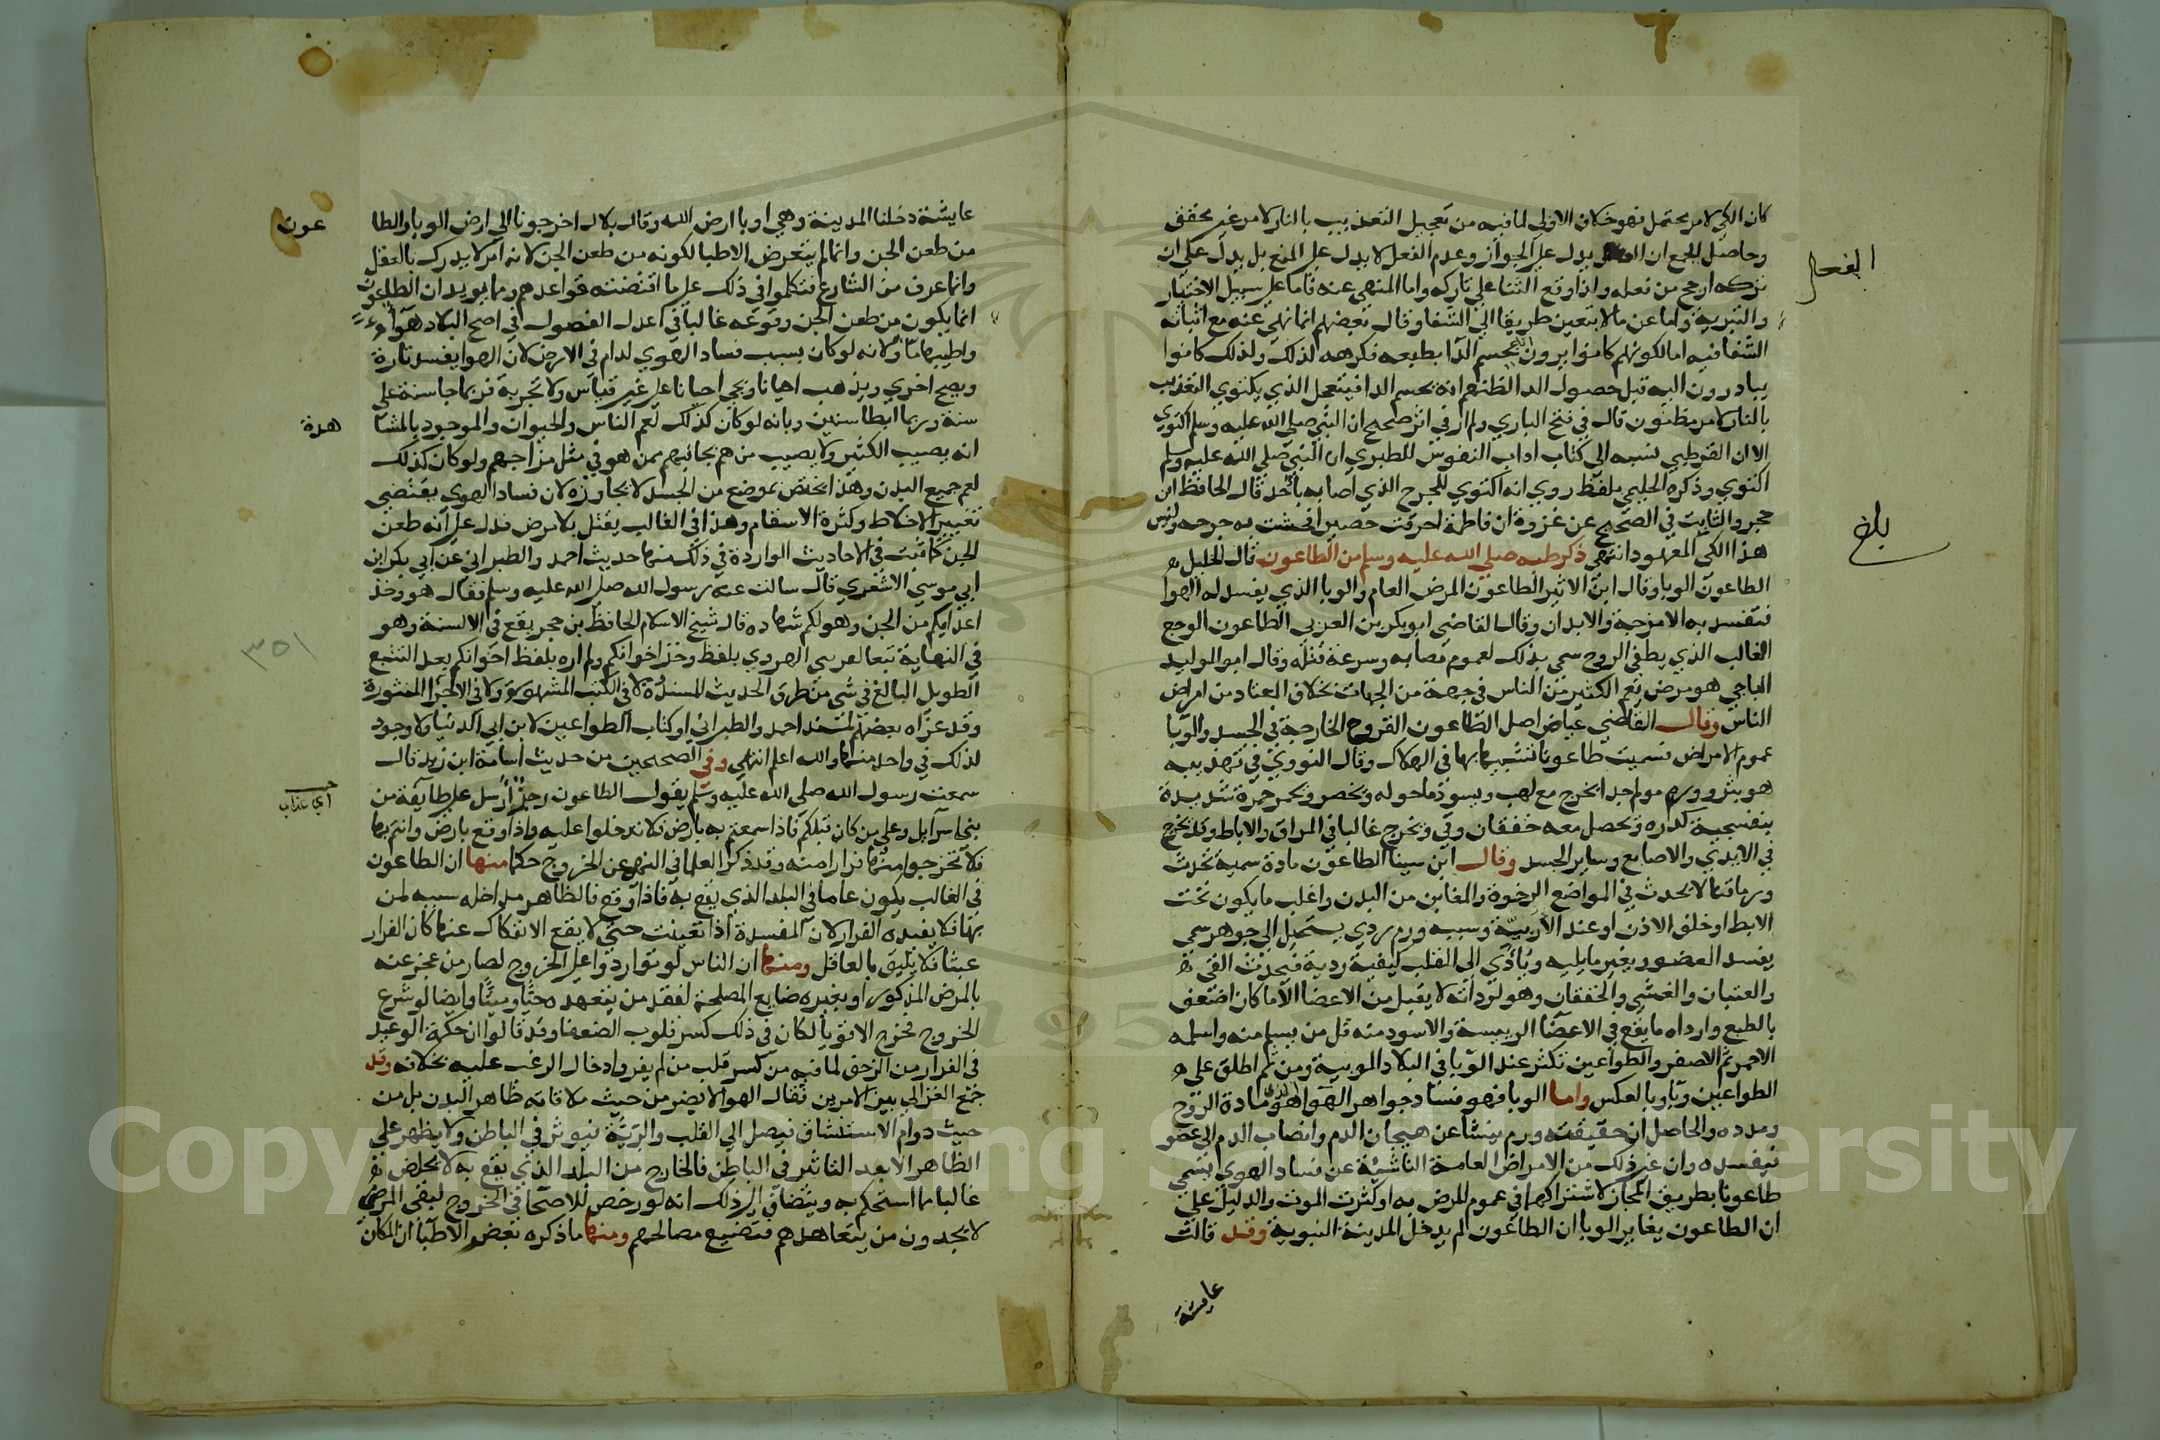 كان الكي لامر محتمل فهو خلاف الاولى لما فيه من تعجيل التعذيب بالنار لامر غير محقق
وحاصل الجمع ان الفعل يدل علي الجواز وعدم الفعل لا يدل علي المنع بل يدل علي ان
تركه ارجح من فعله ولذا وقع الثنا علي تاركه واما النهي عنه فاما علي سبيل الاختيار
والتنزيه واما عن ما لا يتعين طريقا الي الشفا وقال بعضهم انما نهي عنه مع اثباته
الشفا فيه اما لكونهم كانوا يرون انه يحسم الدا بطبعه فكرهه لذلك ولذلك كانوا
يبادرون اليه قبل حصول الدا لظنهم انه يحسم الدا فيتعجل الذي يكتوي التعذيب
بالنار لامر مظنون قال في فتح الباري ولم ار في اثر صحيح ان النبي صلي الله عليه وسلم اكتوي
الا ان القرطبي نسبه الي كتاب اداب النفوس للطبري ان النبي صلي الله عليه وسلم
اكتوي وذكره الحليمي بلفظ روي انه اكتوي للجرح الذي اصابه باحد قال الحافظ ابن
حجر والثابت في الصحيح عن غزوة ان فاطمة احرقت حصيرا فحشت به جرحه وليس
هذا الكي المعهود انتهي ذكر طبه صلي الله عليه وسلم من الطاعون قال الخليل
الطاعون الوبا وقال ابن الاثير الطاعون المرض العام والوبا الذي يفسد له الهوا
فتفسد به الامزجة والابدان وقال القاضي ابو بكر بن العربي الطاعون الوجع
الغالب الذي يطفي الروح سمي بذلك لعموم مصابه وسرعة قتله وقال ابو الوليد
الباجي هو مرض يعم الكثير من الناس في جهة من الجهات بخلاف المعتاد من امراض
الناس وقال القاضي عياض اصل الطاعون القروح الخارجة في الجسد والوبا
عموم الامراض فسميت طاعونا لشبهها بها في الهلاك وقال النووي في تهذيبه
هو بثر وورم مولم جدا يخرج مع لهب ويسود ما حوله ويخضر ويحمر حمرة شديدة
بنفسجية كدره ويحصل معه خفقان وقي ويخرج غالبا في المراق والاباط وقد يخرج
في الايدي والاصابع وساير الجسد وقال ابن سينا الطاعون مادة سمية تحدث
ورما قتالا يحدث في المواضع الرخوة والمغابن من البدن واغلب ما يكون تحت
الابط او خلف الاذن او عند الاربية وسببه ورم ردي يستحيل الي جوهر سمي
يفسد العضو ويغير ما يليه ويؤدي الي القلب كيفية ردية فيحدث القي
والغثيان والغشي والخفقان وهو لرداته لا يقبل من الاعضا الا ما كان اضعف
بالطبع وارداه ما يقع في الاعضا الرييسة والاسود منه قل من يسلم منه واسلمه
الاحمر ثم الاصفر والطواعين تكثر عند الوبا في البلاد الوبية ومن ثم اطلق علي
الطواعين وبا وبالعكس واما الوبا فهو فساد جواهر الهوا الذي هو مادة الروح
ومدده والحاصل ان حقيقته ورم ينشا عن هيجان الدم وانصاب الدم الي عضو
فيفسده وان غير ذلك من الامراض العامة الناشية عن فساد الهوي يسمي
طاعونا بطريق المجاز لاشتراكهما في عموم المرض به او كثرت الموت والدليل علي
ان الطاعون يغاير الوبا ان الطاعون لم يدخل المدينة النبوية وقد قالت
عايشة
الفعل
بلغ
عايشة دخلنا المدينة وهي اوبا ارض الله وقال بلال اخرجونا الي ارض الوبا والطا
عون
من طعن الجن وانما لم يتعرض الاطبا لكونه من طعن الجن لانه امر لا يدرك بالعقل
وانما عرف من الشارع فتكلموا في ذلك علي ما اقتضته قواعدهم ومما يويد ان الطاعون
انما يكون من طعن الجن وقوعه غالبا في اعدل الفصول في اصح البلاد هوا
واطيبها ما ولانه لو كان بسبب فساد الهوي لدام في الارض لان الهوا يفسد تارة
ويصح اخري ويذهب احيانا ويجي احيانا علي غير قياس ولا تجربة فربما جا سنة علي
سنة وربما ابطا سنين وبانه لو كان كذلك لعم الناس والحيوان والموجود بالمشا
هدة
انه يصيب الكثير ولا يصيب من هم بجانبهم ممن هو في مثل مزاجهم ولو كان كذلك
لعم جميع البدن وهذا يختص بموضع من الجسد لا يجاوزه لان فساد الهوي يقتضي
تغيير الاخلاط وكثرة الاسقام وهذا في الغالب يقتل بلا مرض فدل علي انه طعن
الجن كما ثبت في الاحاديث الواردة في ذلك منها حديث احمد والطبراني عن ابي بكر ابن
ابي موسي الاشعري قال سالت عنه رسول الله صلي الله عليه وسلم فقال هو وخز
اعدايكم من الجن وهو لكم شهاده قال شيخ الاسلام الحافظ بن حجر يقع في الالسنة وهو
في النهاية تبعا لغريبي الهروي بلفظ وخز اخوانكم ولم اره بلفظ اخوانكم بعد التتبع
الطويل البالغ في شي من طرق الحديث المسندة لا في الكتب المشهورة ولا في الاجزا المنثورة
وقد عزاه بعضهم لمسند احمد والطبراني او كتاب الطواعين لابن ابي الدنيا ولا وجود
لذلك في واحد منها والله اعلم انتهي وفي الصحيحين من حديث اسامة ابن زيد قال
سمعت رسول الله صلي الله عليه وسلم يقول الطاعون رجز ارسل علي طايفة من
اي عذاب
بني اسرايل وعلي من كان قبلكم فاذا سمعتم به بارض فلا تدخلوا عليه واذا وقع بارض وانتم بها
فلا تخرجوا منها فرارا منه وقد ذكر العلما في النهي عن الخروج حكما منها ان الطاعون
في الغالب يكون عاما في البلد الذي يقع به فاذا وقع فالظاهر مداخله سببه لمن
بها فلا يفيده الفرار لان المفسدة اذا تعينت حتي لا يقع الانفكاك عنها كان الفرار
عبثا فلا يليق بالعاقل ومنها ان الناس لو تواردوا علي الخروج لصار من عجز عنه
بالمرض المذكور او بغيره ضايع المصلحة لفقد من يتعهده حيا وميتا وايضا لو شرع
الخروج فخرج الاقويا لكان في ذلك كسر قلوب الضعفا وقد قالوا ان حكمة الوعيد
في الفرار من الزحف لما فيه من كسر قلب من لم يفر وادخال الرعب عليه بخلافه وقد
جمع الغزالي بين الامرين فقال الهوا لا يضر من حيث ملاقاته ظاهر البدن بل من
حيث دوام الاستنشاق فيصل الي القلب والرية فيوثر في الباطن ولا يظهر علي
الظاهر الا بعد التاثير في الباطن فالخارج من البلد الذي يقع به لا يخلص
غالبا مما استحكم به ويضاف الي ذلك انه لو رخص للاصحا في الخروج لبقي المرضي
لا يجدون من يتعاهدهم فتضيع مصالحهم ومنها ما ذكره بعض الاطبا ان المكان
٣٥١
Copyright © King Saud University
1957